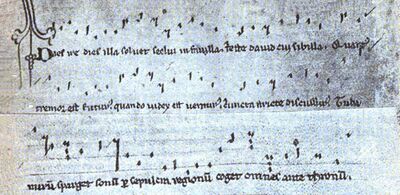 Dies ire dies illa solvet seclu in favilla. teste david cu sibilla. Quant
tremor est futur quando iudex est ventur cuncta stricte discussur Tuba
miru sparget sonu p sepulcra regionu coget omnes ante thronu.